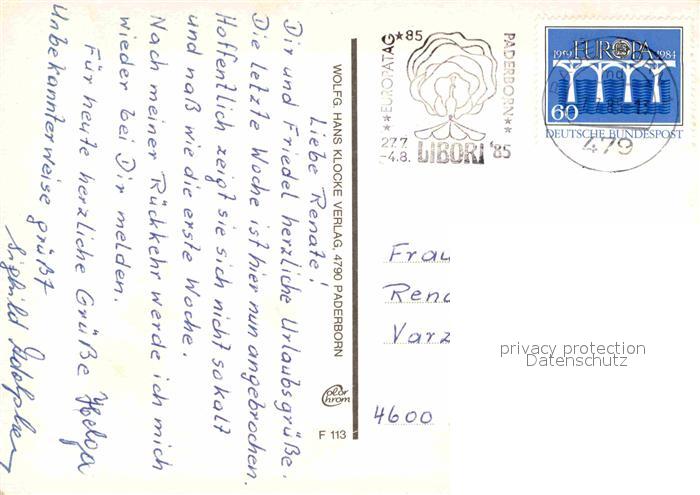 Liebe Renate!
Dir und Friedel herzliche Urlaubsgrüße.
Die letzte Woche ist hier nun angebrochen.
Hoffentlich zeigt sie sich nicht so kalt
und naß wie die erste Woche.
Nach meiner Rückkehr werde ich mich
wieder bei Dir melden.
Für heute herzliche Grüße Helga
Unbekannterweise grüßt
WOLFG. HANS KLOCKE VERLAG, 4790 PADERBORN
color
chrom
F 113
*EUROPATAG*85 PADERBORN**
27.7.
-4.8. LIBORI '85
1959 EUROPA 1984
60
DEUTSCHE BUNDESPOST
479
Frau
Rena
Varz
4600
privacy protection
Datenschutz